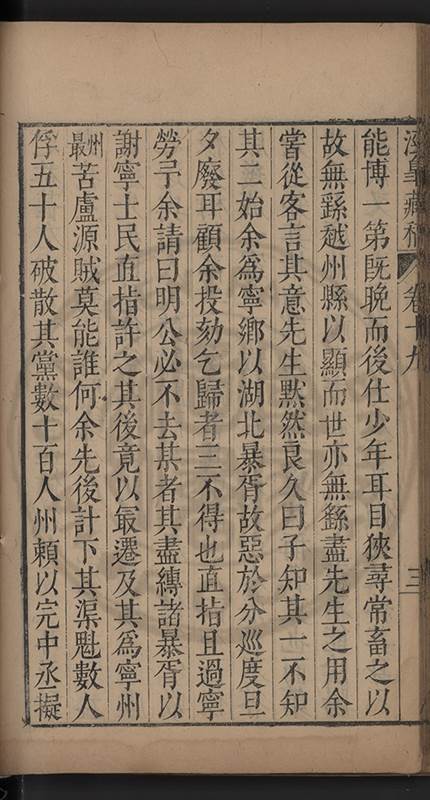 涇皋藏稿 卷十九 三
能博一第旣晚而後仕少年耳目狹尋常畜之以
故無繇越州縣以顯而世亦無繇盡先生之用余
嘗從容言其意先生默然良久曰子知其一不知
其二始余爲寧鄉以湖北暴胥故惡於分巡度旦
夕廢耳顧余投劾乞歸者三不得也直指且過寧
勞予余請曰明公必不去某者其盡縛諸暴胥以
謝寧士民直指許之其後竟以最遷及其爲寧州
州最苦盧源賊莫能誰何余先後計下其渠魁數人
俘五十人破散其黨數十百人州賴以完中丞擬